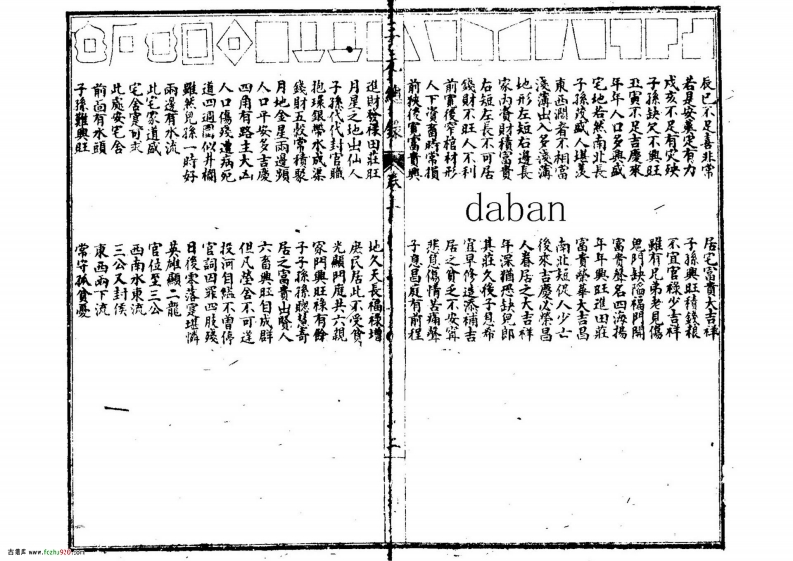 辰巳不足喜非常 居宅富貴大吉祥
若是安莫定有力 子孫興旺積錢粮
戌亥不足有灾殃 不宜官祿少吉祥
子孫缺欠不興旺 雖有兄弟老見傷
丑寅不足吉慶來 鬼門缺陷福門開
年年人口多興盛 富貴聲名四海揚
宅地若然南北長 年年興旺進田莊
子孫茂盛人堪羨 富貴榮華大吉昌
東西濶者不相當 南北短促人少亡
淺薄出入多淺薄 後來吉慶必榮昌
地形左短右邊長 人眷居之大吉祥
家內資財積富貴 年深猶恐缺兒郎
右短左長不可居 其莊久後子息希
錢財不旺人不利 宜早修造添補吉
前寬後窄棺材形 居之貧乏不安寧
人下資畜時常損 悲見傷情苦痛聲
前狹後寬富貴興 子息昌庭有前程
卷
進財發祿田莊旺 地久天長福祿增
月星之地出仙人 庶民居此不受貧
子孫代代封官職 光顯門庭共六親
抱珠銀帶水成渠 家門興旺祿有餘
錢財五穀常積聚 子子孫孫聰慧奇
月地金星兩邊 居之富貴出賢人
人口平安多吉慶 六畜興旺自成群
四角有路主大凶 但凡塋舍不可逢
人口傷殘遭病死 投河自縊不曾停
道四週圍似井欄 官詞囚罪四肢殘
雖然兒孫一時好 日後零落定堪憐
兩邊有水流 英雄顯二龍
此宅家道盛 官位至三公
宅舍定可求 西南水東流
此處安宅舍 三公又封侯
前面有水頭 東西兩下流
子孫難興旺 常守孤貧憂
daban
www.fczhu920.com